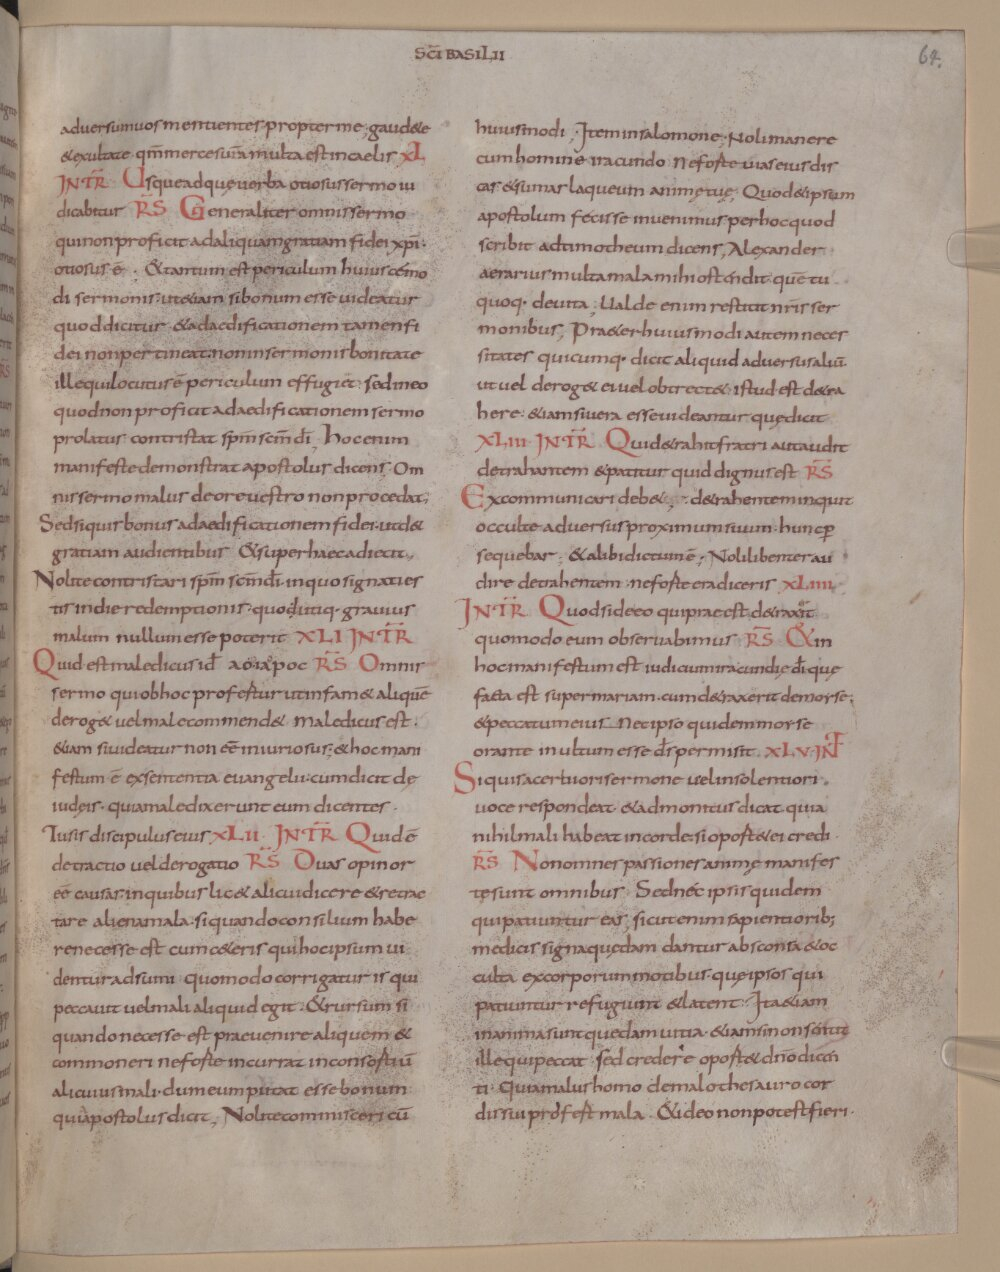 SCĪ BASILII
64.
adversum vos mentientes propter me, gaud&e
& exultate qm̄ merces ur̄a multa est in caelis XL
INTR̄ Usque ad quę verba otiosus sermo iu
dicabitur RS̄ Generaliter omnis sermo
qui non proficit ad aliquam gratiam fidei xpī·
otiosus ē · & tantum est periculum huiuscemo
di sermonis· ut &iam si bonum esse uideatur
quod dicitur & ad aedificationem tamen fi
dei non pertineat· non in sermonis bonitate
ille qui locutus ē periculum effugi&· sed in eo
quod non proficit ad aedificationem sermo
prolatus contristat spm̄ scm̄ dī; Hoc enim
manifeste demonstrat apostolus dicens· Om
nis sermo malus de ore uestro non procedat;
Sed si quis bonus ad aedificationem fidei· ut d&
gratiam audientibus &super haec adiecit,
Nolite contristari spm̄ scm̄ dī· in quo signati es
tis in die redemptionis· quo d utiq· grauius
malum nullum esse poterit XLI INTR̄
Quid est maledicus id̄ ΛΟΙΔΟΡΟC RS̄ Omnis
sermo qui ob hoc profertur ut infam& aliquē
derog& uel male commend& maledicus est·
&iam si uideatur non eē iniuriosus; & hoc mani
festum ē ex sententia euangelii· cum dicit dę
iudęis· quia maledixerunt eum dicentes·
Tu sis discipulus eius XLII· INTR̄ Quid ē
detractio uel derogatio RS̄ Duas opinor
eē causas· in quibus lic& alicui dicere & retrac
tare aliena mala· si quando consilium habe
re necesse est cum c&eris qui hoc ipsum ui
dentur adsumi· quomodo corrigatur is qui
peccauit uel mali aliquid egit· & rursum si
quando necesse est praeuenire aliquem &
commoneri ne forte incurrat in consortiū
alicuius mali· dum eum putat esse bonum
quia apostolus dicit, Nolite commisceri cū
huiusmodi; Item in salomone, Noli manere
cum homine iracundo ne forte uias eius dis
cas & sumas laqueum animę tuę, Quod & ipsum
apostolum fecisse inuenimus per hoc quod
scribit ad timotheum dicens, Alexander
aerarius multa mala mihi ostendit· quē tu
quoq· deuita, Ualde enim restitit nrīs ser
monibus; Praeter huiusmodi autem neces
sitates quicumq· dicit aliquid aduersus aliū
ut uel derog& ei uel obtrect&· istud est d&ra
here· &iam si uera esse uideantur quę dicit
XLIII· INTR̄ Qui d&rahit fratri aut audit
detrahentem & patitur quid dignus est RS̄
Excommunicari debe&; d&rahentem inquit
occulte aduersus proximum suum· hunc per
sequebar; & alibi dictum ē, Noli libenter au
dire detrahentem· ne forte eradiceris XLIIII·
INTR̄ Quod si de eo qui praeest d&raxit
quomodo eum obseruabimus RS̄ & in
hoc manifestum est iudicium iracundię dī quę
facta est super mariam· cum d&raxerit de morse·
& peccatum eius Nec ipso quidem morse
orante inultum esse ds̄ permisit XLV· INT̄
Si quis acertiori sermone uel insolentiori
uoce respondeat & admonitus dicat quia
nihil mali habeat in corde· si oport& ei credi·
RS̄ Non omnes passiones animę manifes
tę sunt omnibus Sed nec ipsis quidem
qui patiuntur eas; sicut enim sapientiorib;
medicis signa quędam dantur absconsa & oc
culta ex corporum motibus· quę ipsos qui
patiuntur refugiunt & latent· Ita &iam
in anima sunt quędam uitia· &iam si non sentit
ille qui peccat sed credere oport& dnō dicen
ti· Quia malus homo de malo thesauro cor
dis sui profert mala· & ideo non potest fieri·